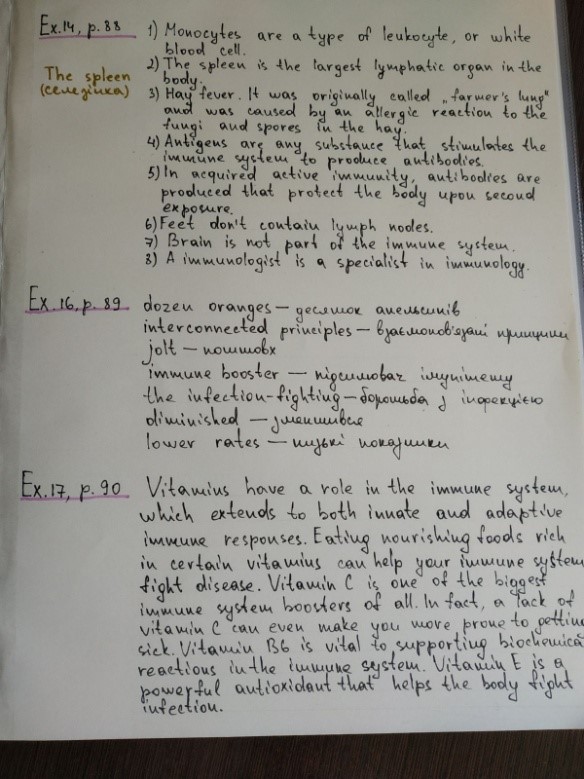 Ex.14, p.88
1) Monocytes are a type of leukocyte, or white
blood cell.
The spleen
(селезінка)
2) The spleen is the largest lymphatic organ in the
body.
3) Hay fever. It was originally called „farmer's lung"
and was caused by an allergic reaction to the
fungi and spores in the hay.
4) Antigens are any substance that stimulates the
immune system to produce antibodies.
5) In acquired active immunity, antibodies are
produced that protect the body upon second
exposure.
6) Feet don't contain lymph nodes.
7) Brain is not part of the immune system.
8) A immunologist is a specialist in immunology.
Ex.16, p.89
dozen oranges — десяток апельсинів
interconnected principles — взаємопов'язані принципи
jolt — поштовх
immune booster — підсилювач імунітету
the infection-fighting — боротьба з інфекцією
diminished — зменшився
lower rates — низькі показники
Ex.17, p.90
Vitamins have a role in the immune system,
which extends to both innate and adaptive
immune responses. Eating nourishing foods rich
in certain vitamins can help your immune system
fight disease. Vitamin C is one of the biggest
immune system boosters of all. In fact, a lack of
vitamin C can even make you more prone to getting
sick. Vitamin B6 is vital to supporting biochemical
reactions in the immune system. Vitamin E is a
powerful antioxidant that helps the body fight
infection.